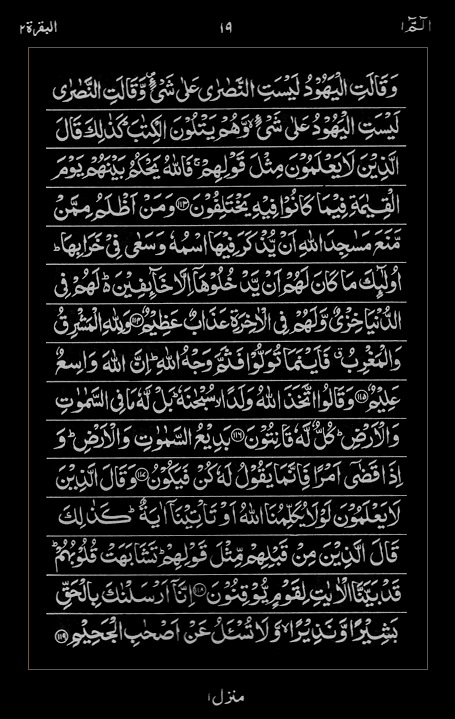 الٓمّٓ ١ ١٩ البقرة ٢
وَقَالَتِ الْيَهُوْدُ لَيْسَتِ النَّصٰرٰى عَلٰى شَیْءٍ ۪ وَّقَالَتِ النَّصٰرٰى
لَيْسَتِ الْيَهُوْدُ عَلٰى شَیْءٍ ۙ وَّهُمْ يَتْلُوْنَ الْكِتٰبَ ؕ كَذٰلِكَ قَالَ
الَّذِيْنَ لَا يَعْلَمُوْنَ مِثْلَ قَوْلِهِمْ ۚ فَاللّٰهُ يَحْكُمُ بَيْنَهُمْ يَوْمَ
الْقِيٰمَةِ فِيْمَا كَانُوْا فِيْهِ يَخْتَلِفُوْنَ ۝۱۱۳ وَمَنْ اَظْلَمُ مِمَّنْ
مَّنَعَ مَسٰجِدَ اللّٰهِ اَنْ يُّذْكَرَ فِيْهَا اسْمُهٗ وَسَعٰى فِیْ خَرَابِهَا ؕ
اُولٰٓئِكَ مَا كَانَ لَهُمْ اَنْ يَّدْخُلُوْهَاۤ اِلَّا خَآئِفِيْنَ ؕ۬ لَهُمْ فِی
الدُّنْيَا خِزْیٌ وَّلَهُمْ فِی الْاٰخِرَةِ عَذَابٌ عَظِيْمٌ ۝۱۱۴ وَلِلّٰهِ الْمَشْرِقُ
وَالْمَغْرِبُ ۗ فَاَيْنَمَا تُوَلُّوْا فَثَمَّ وَجْهُ اللّٰهِ ؕ اِنَّ اللّٰهَ وَاسِعٌ
عَلِيْمٌ ۝۱۱۵ وَقَالُوا اتَّخَذَ اللّٰهُ وَلَدًا ۙ سُبْحٰنَهٗ ؕ بَلْ لَّهٗ مَا فِی السَّمٰوٰتِ
وَالْاَرْضِ ؕ كُلٌّ لَّهٗ قٰنِتُوْنَ ۝۱۱۶ بَدِيْعُ السَّمٰوٰتِ وَالْاَرْضِ ؕ وَ
اِذَا قَضٰۤى اَمْرًا فَاِنَّمَا يَقُوْلُ لَهٗ كُنْ فَيَكُوْنُ ۝۱۱۷ وَقَالَ الَّذِيْنَ
لَا يَعْلَمُوْنَ لَوْلَا يُكَلِّمُنَا اللّٰهُ اَوْ تَاْتِيْنَاۤ اٰيَةٌ ؕ كَذٰلِكَ
قَالَ الَّذِيْنَ مِنْ قَبْلِهِمْ مِّثْلَ قَوْلِهِمْ ؕ تَشَابَهَتْ قُلُوْبُهُمْ ؕ
قَدْ بَيَّنَّا الْاٰيٰتِ لِقَوْمٍ يُّوْقِنُوْنَ ۝۱۱۸ اِنَّاۤ اَرْسَلْنٰكَ بِالْحَقِّ
بَشِيْرًا وَّنَذِيْرًا ۙ وَّلَا تُسْئَلُ عَنْ اَصْحٰبِ الْجَحِيْمِ ۝۱۱۹
منزل ١